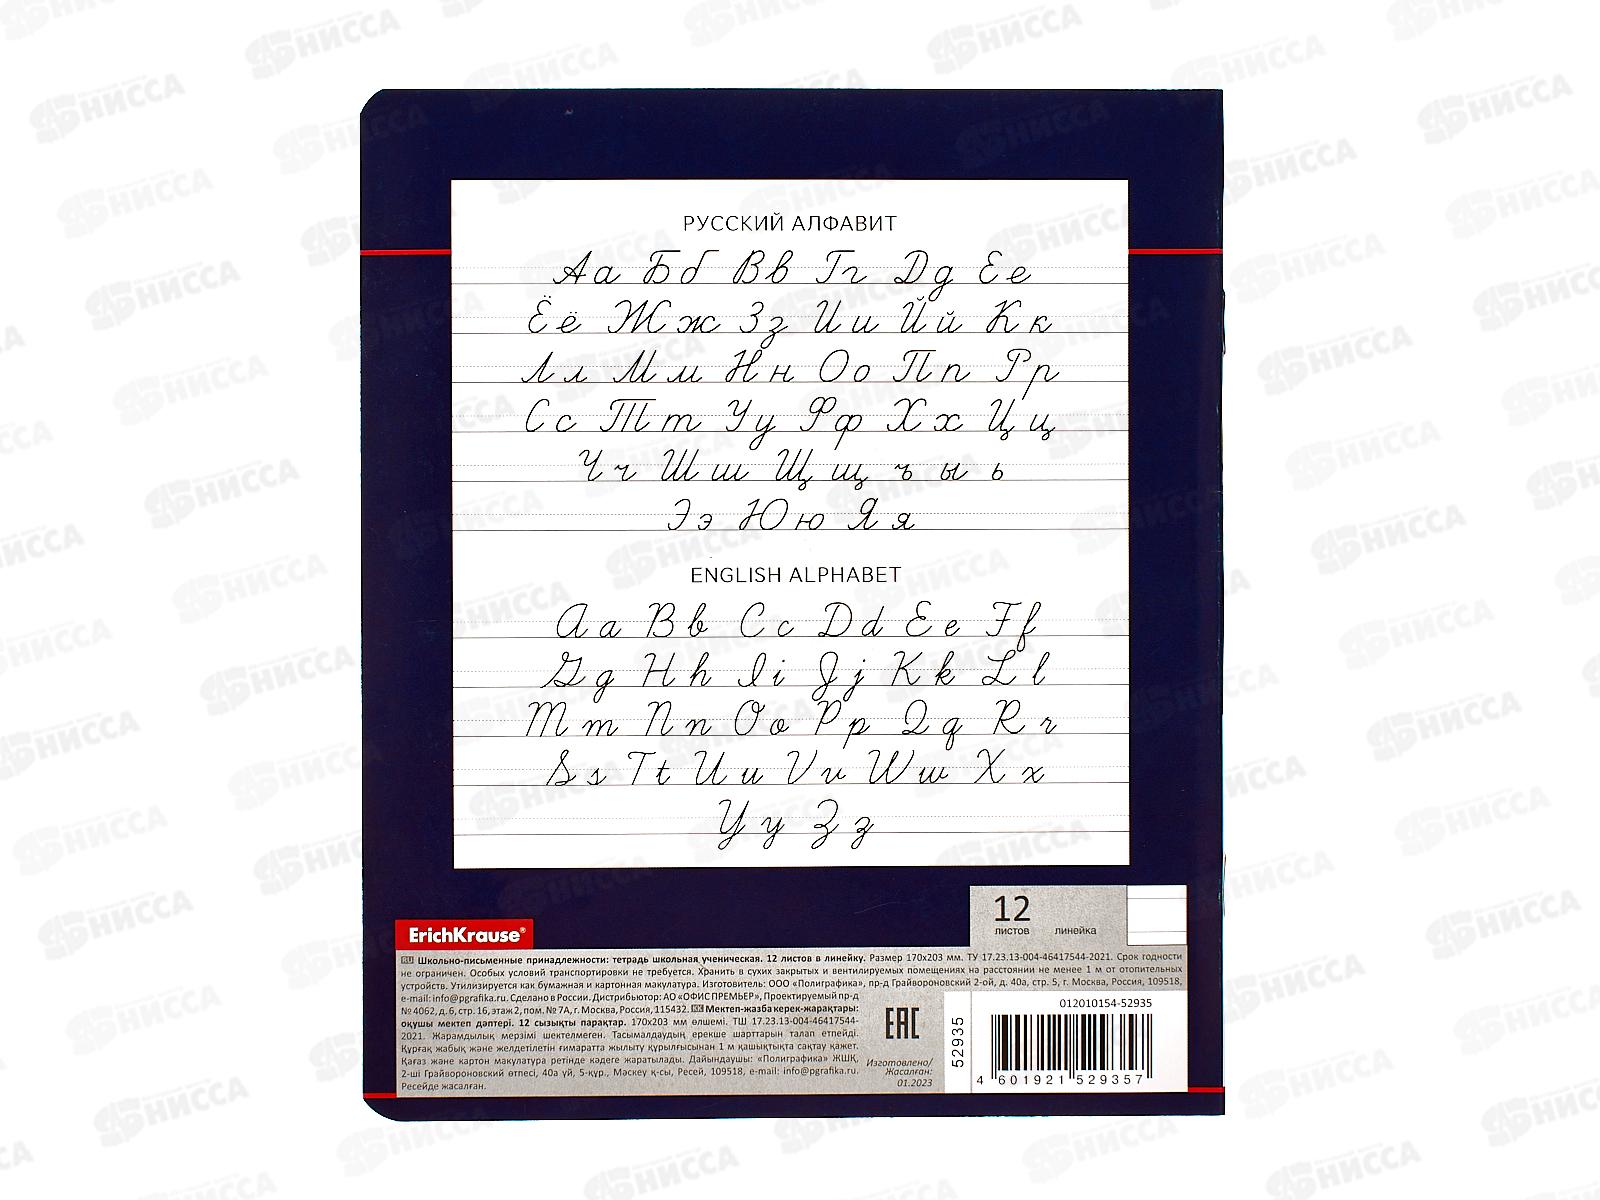 РУССКИЙ АЛФАВИТ
Аа Бб Вв Гг Дд Ее
Ёё Жж Зз Ии Йй Кк
Лл Мм Нн Оо Пп Рр
Сс Тт Уу Фф Хх Цц
Чч Шш Щщ ъ ы ь
Ээ Юю Яя
ENGLISH ALPHABET
Aa Bb Cc Dd Ee Ff
Gg Hh Ii Jj Kk Ll
Mm Nn Oo Pp Qq Rr
Ss Tt Uu Vv Ww Xx
Yy Zz
12
листов линейка
ErichKrause®
RU Школьно-письменные принадлежности: тетрадь школьная ученическая. 12 листов в линейку. Размер 170х203 мм. ТУ 17.23.13-004-46417544-2021. Срок годности
не ограничен. Особых условий транспортировки не требуется. Хранить в сухих закрытых и вентилируемых помещениях на расстоянии не менее 1 м от отопительных
устройств. Утилизируется как бумажная и картонная макулатура. Изготовитель: ООО «Полиграфика», пр-д Грайвороновский 2-ой, д. 40а, стр. 5, г. Москва, Россия, 109518,
e-mail: info@pgrafika.ru. Сделано в России. Дистрибьютор: АО «ОФИС ПРЕМЬЕР», Проектируемый пр-д
№ 4062, д. 6, стр. 16, этаж 2, пом. № 7А, г. Москва, Россия, 115432. KK Мектеп-жазба керек-жарақтары:
оқушы мектеп дәптері. 12 сызықты парақтар. 170х203 мм өлшемі. ТШ 17.23.13-004-46417544-
2021. Жарамдылық мерзімі шектелмеген. Тасымалдаудың ерекше шарттарын талап етпейді.
Құрғақ жабық және желдетілетін ғимаратта жылыту құрылғысынан 1 м қашықтықта сақтау қажет.
Қағаз және картон макулатура ретінде кәдеге жаратылады. Дайындаушы: «Полиграфика» ЖШҚ,
2-ші Грайвороновский өтпесі, 40а үй, 5-құр., Мәскеу қ-сы, Ресей, 109518, e-mail: info@pgrafika.ru.
Ресейде жасалған.
EAC
Изготовлено/
Жасалған:
01.2023
52935
012010154-52935
4 601921 529357
НИССА